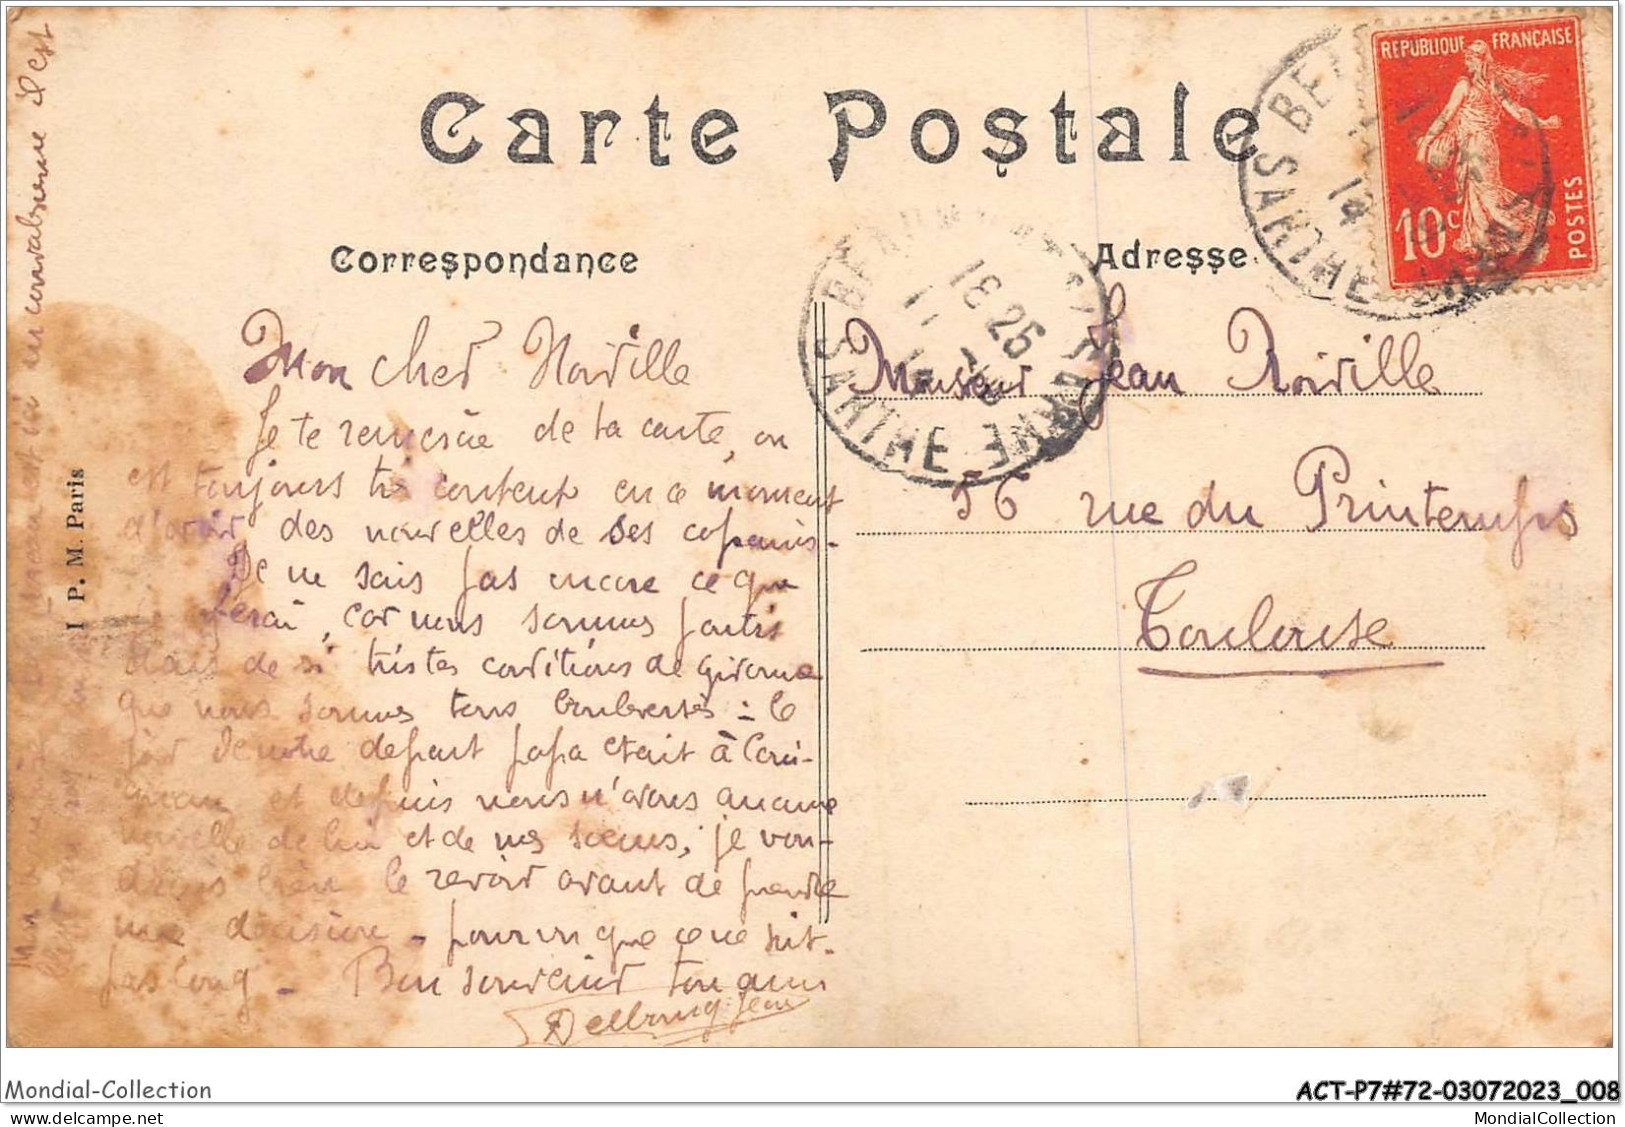 Carte Postale
REPUBLIQUE FRANÇAISE
10c
POSTES
Correspondance
Adresse
SARTHE
Mon cher Noirville
Je te remercie de ta carte, on
est toujours très content en ce moment
d'avoir des nouvelles de ses copains.
Je ne sais pas encore ce que
ferai, car nous sommes partis
dans de si tristes conditions de
que nous sommes tous bouleversés : le
jour de notre départ papa était à
et depuis nous n'avons aucune
nouvelle de lui et de nos soeurs, je vou-
drais bien le revoir avant de prendre
une décision - pourvu que ce ne soit
pas long - Bon souvenir ton ami
Jean
en convalescence il est
I P. M. Paris
Monsieur Jean Noirville
56 rue du Printemps
Toulouse
Mondial-Collection
ACT-P7#72-03072023_008
MondialCollection